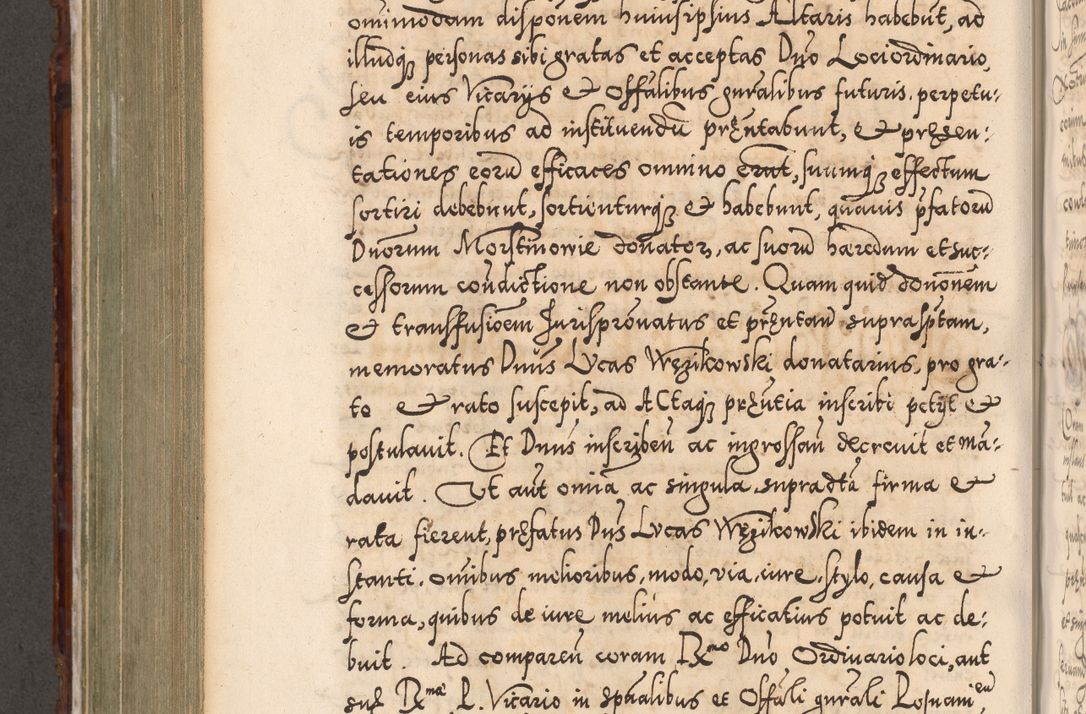 omnimodam disponem huiusipsius Altaris habebūt, ad
illudq̨ personas sibi gratas et acceptas Dno Loci ordinario,
seu eius Vicarijs & Offālibus gnrālibus futuris, perpetu-
is temporibus ad instituendū pręntabunt, & pręsen:
tationes eorū efficaces omnino erūt, suumq̨ effectum
sortiri debebunt, sortienturq̨ & habebunt, quāuis pfatorū
Dnorum Morstinowie donator, ac suorū hæredum et suc-
cessorum cōndictione non obstante. Quam quid donōnem
& transfusiōem Jurispronatus et pręntan̄ suprasptam,
memoratus Dnūs Lvcas Węzikowski donatarius, pro gra-
to & rato suscepit, ad Actaq̨ pręntia inscribi petijt &
postulauit. Et Dnus inscriben̄ ac ingrossan̄ decreuit et mā-
dauit. Vt aūt omīa ac singula supradtā firma &
rata fierent, pręfatus Dn̄s Lvcas Węzikowski ibidem in in-
stanti, omībus melioribus, modo, via, iure, stylo, causa &
forma, quibus de iure meliūs ac efficatius potuit ac de:
buit. Ad comparen̄ coram Rx̄mo Dno Ordinario loci, aut
Vicario in spāalibus et Offāli gnrāli